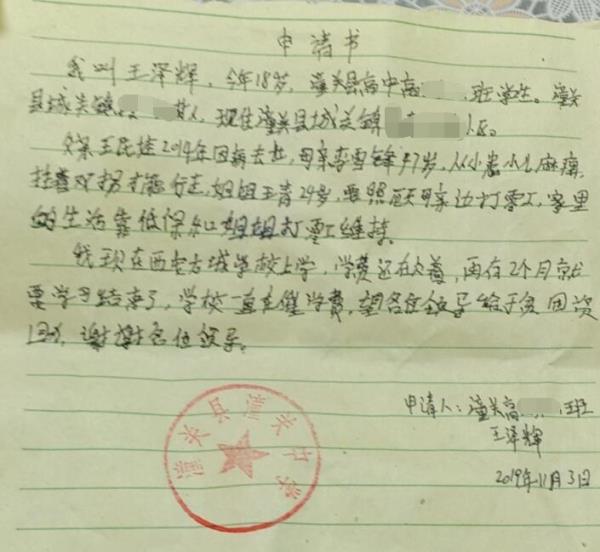 申请书
我叫王泽辉，今年18岁，潼关县高中高 班学生。潼关
县城关镇 人，现住潼关县城关镇
父亲王民挂2014年因病去世，母亲李雪锋47岁，从小患小儿麻痹，
拄着双拐才能行走，姐姐王青24岁，要照顾母亲边打零工，家里
的生活靠低保和姐姐打零工维持。
我现在西安古城学校上学，学费还在欠着，再在2个月就
要学习结束了，学校一直在催学费，望各位领导给于贫困资
谢谢各位领导。
申请人：潼关高 班
王泽辉
2019年11月3日
潼关县潼关中学